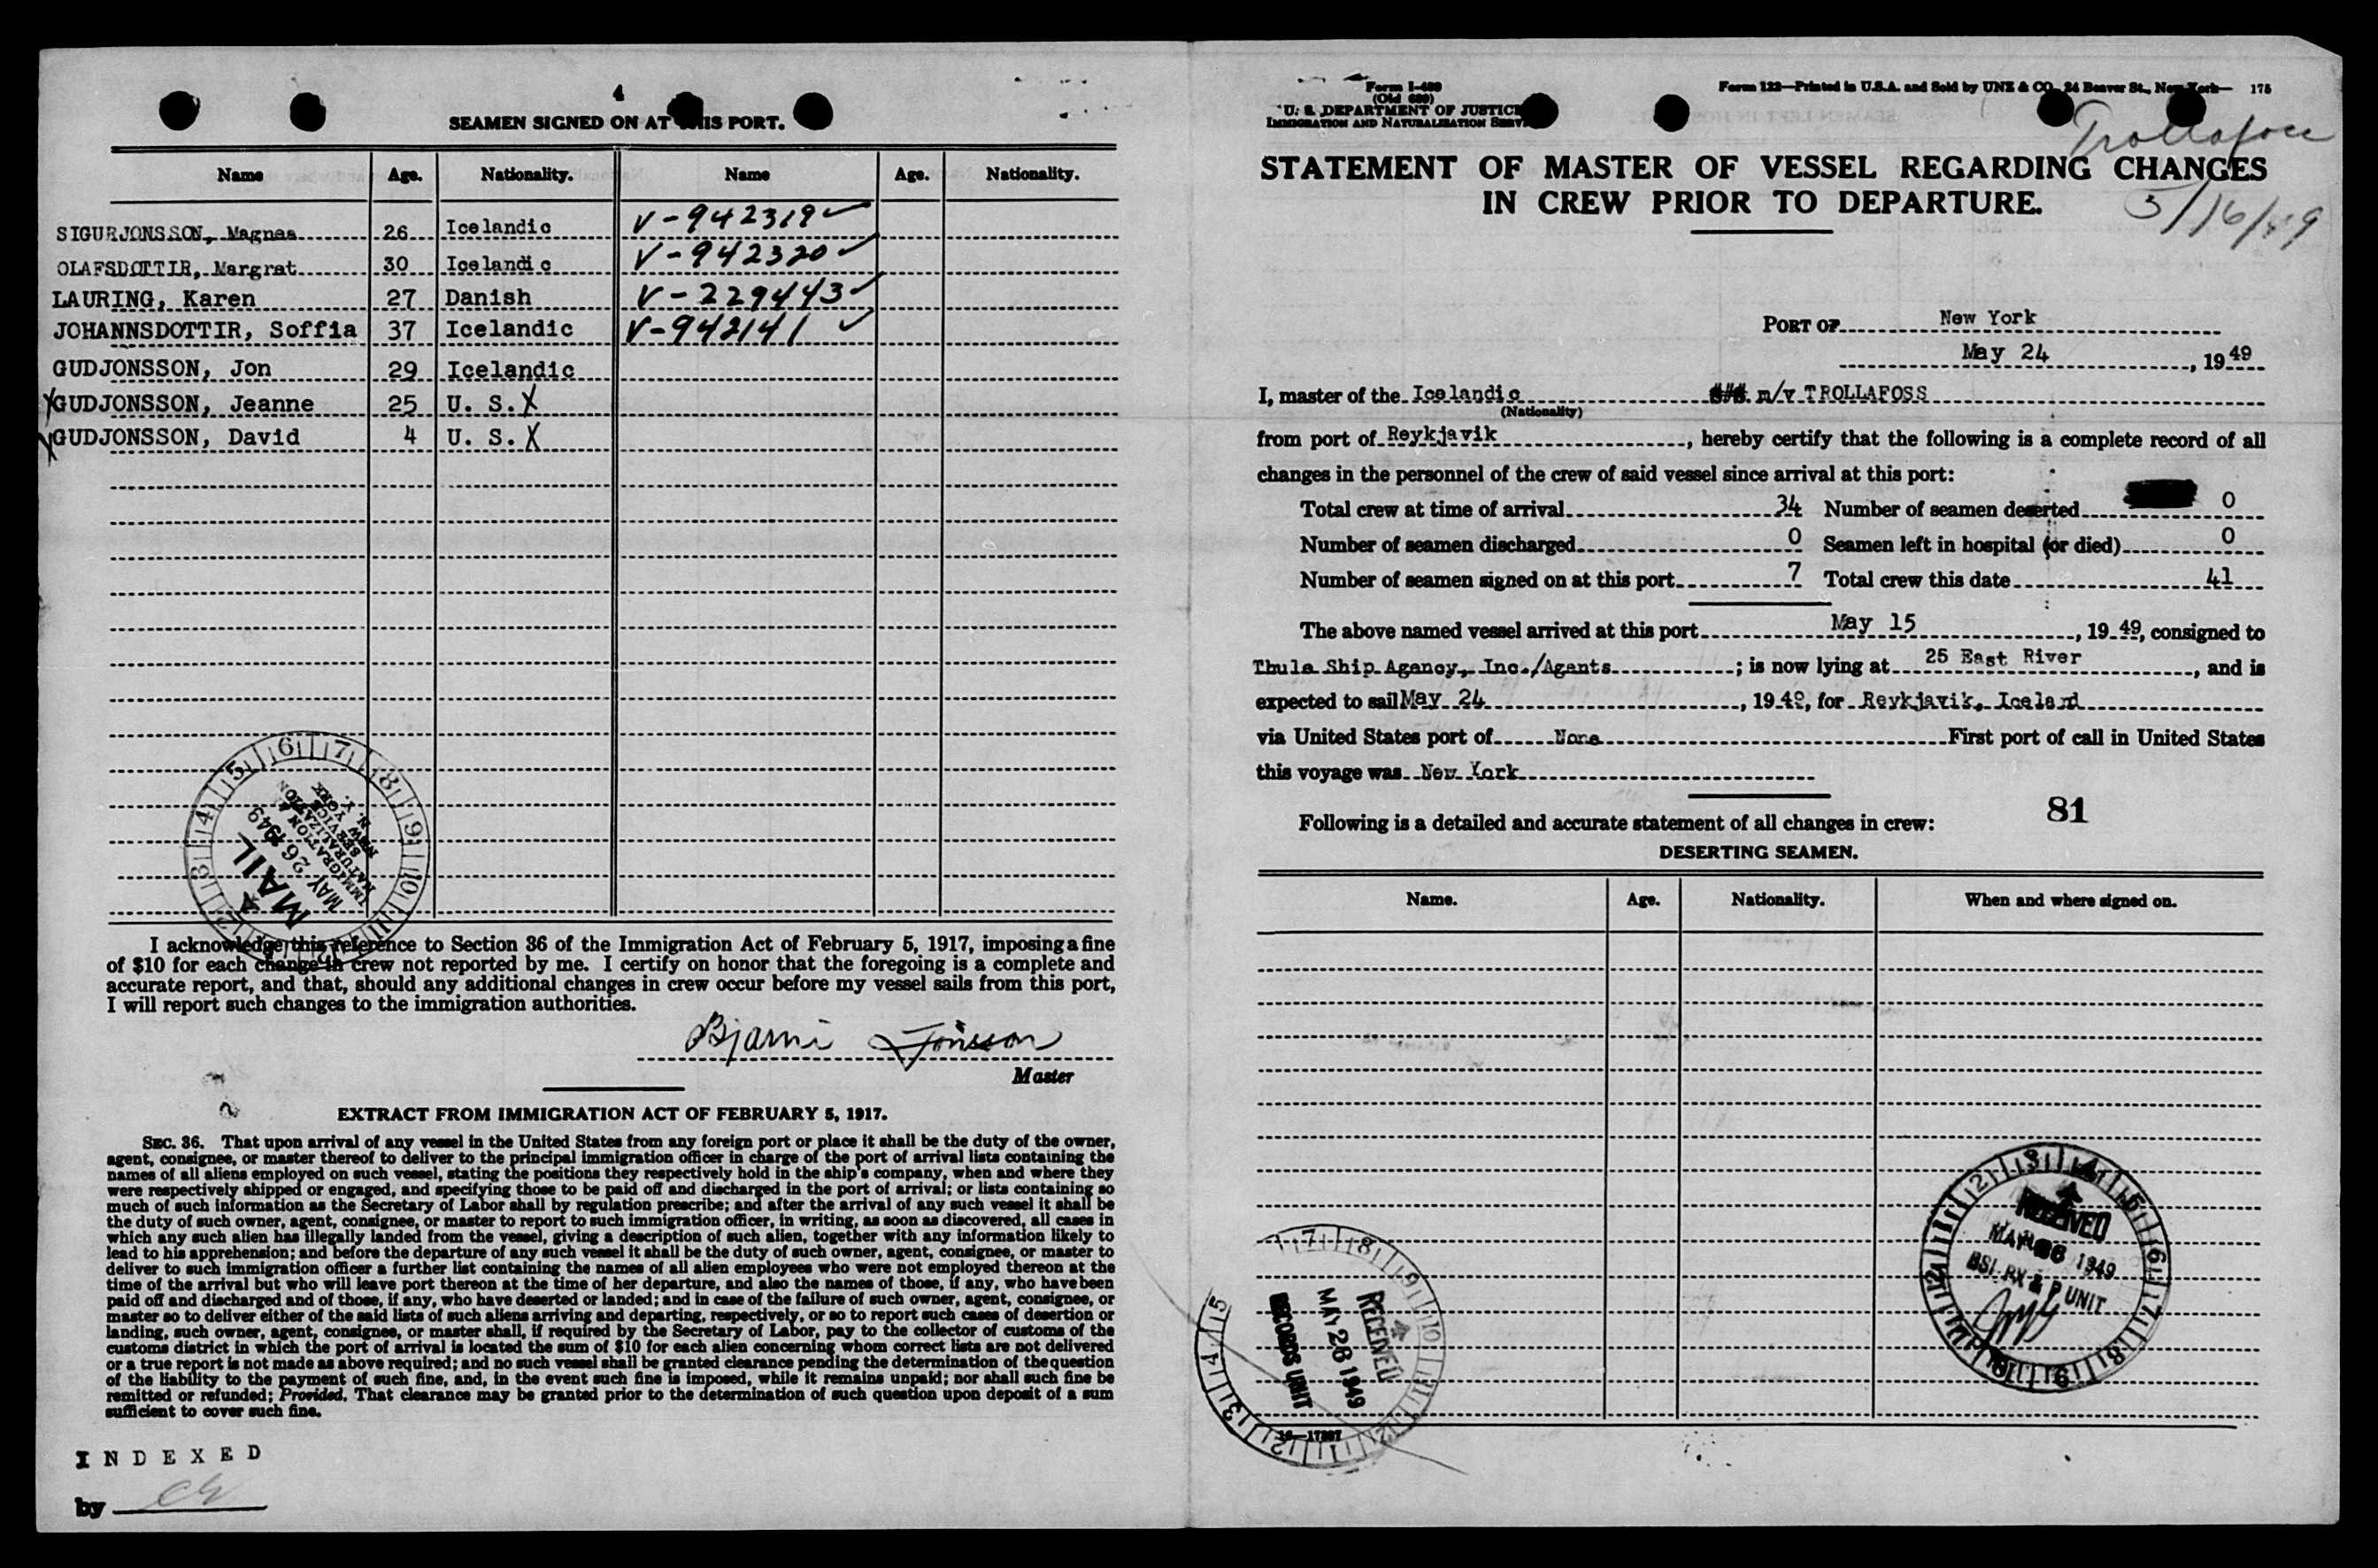 4
SEAMEN SIGNED ON AT THIS PORT.
Name Age. Nationality. Name Age. Nationality.
SIGURJONSSON, Magnea 26 Icelandic V-942319 ✓
OLAFSDOTTIR, Margrat 30 Icelandic V-942320 ✓
LAURING, Karen 27 Danish V-229443 ✓
JOHANNSDOTTIR, Soffia 37 Icelandic V-942141 ✓
GUDJONSSON, Jon 29 Icelandic
X GUDJONSSON, Jeanne 25 U. S. X
X GUDJONSSON, David 4 U. S. X
5 6 7 8 9 10 11
MAIL
MAY 26 1949
IMMIGRATION
NATURALIZATION
SERVICE
NEW YORK
N. Y.
I acknowledge this reference to Section 36 of the Immigration Act of February 5, 1917, imposing a fine
of $10 for each change in crew not reported by me. I certify on honor that the foregoing is a complete and
accurate report, and that, should any additional changes in crew occur before my vessel sails from this port,
I will report such changes to the immigration authorities.
Bjarni Jónsson
Master
EXTRACT FROM IMMIGRATION ACT OF FEBRUARY 5, 1917.
SEC. 36. That upon arrival of any vessel in the United States from any foreign port or place it shall be the duty of the owner,
agent, consignee, or master thereof to deliver to the principal immigration officer in charge of the port of arrival lists containing the
names of all aliens employed on such vessel, stating the positions they respectively hold in the ship's company, when and where they
were respectively shipped or engaged, and specifying those to be paid off and discharged in the port of arrival; or lists containing so
much of such information as the Secretary of Labor shall by regulation prescribe; and after the arrival of any such vessel it shall be
the duty of such owner, agent, consignee, or master to report to such immigration officer, in writing, as soon as discovered, all cases in
which any such alien has illegally landed from the vessel, giving a description of such alien, together with any information likely to
lead to his apprehension; and before the departure of any such vessel it shall be the duty of such owner, agent, consignee, or master to
deliver to such immigration officer a further list containing the names of all alien employees who were not employed thereon at the
time of the arrival but who will leave port thereon at the time of her departure, and also the names of those, if any, who have been
paid off and discharged and of those, if any, who have deserted or landed; and in case of the failure of such owner, agent, consignee, or
master so to deliver either of the said lists of such aliens arriving and departing, respectively, or so to report such cases of desertion or
landing, such owner, agent, consignee, or master shall, if required by the Secretary of Labor, pay to the collector of customs of the
customs district in which the port of arrival is located the sum of $10 for each alien concerning whom correct lists are not delivered
or a true report is not made as above required; and no such vessel shall be granted clearance pending the determination of the question
of the liability to the payment of such fine, and, in the event such fine is imposed, while it remains unpaid; nor shall such fine be
remitted or refunded; Provided, That clearance may be granted prior to the determination of such question upon deposit of a sum
sufficient to cover such fine.
INDEXED
by
Form I-489
(Old 689)
U. S. DEPARTMENT OF JUSTICE
IMMIGRATION AND NATURALIZATION SERVICE
Form 122—Printed in U.S.A. and Sold by UNZ & CO., 24 Beaver St., New York— 175
Trollafoss
STATEMENT OF MASTER OF VESSEL REGARDING CHANGES
IN CREW PRIOR TO DEPARTURE.
5/16/49
PORT OF New York
May 24, 1949
I, master of the Icelandic m/v TROLLAFOSS
(Nationality)
from port of Reykjavik, hereby certify that the following is a complete record of all
changes in the personnel of the crew of said vessel since arrival at this port:
Total crew at time of arrival 34 Number of seamen deserted 0
Number of seamen discharged 0 Seamen left in hospital (or died) 0
Number of seamen signed on at this port 7 Total crew this date 41
The above named vessel arrived at this port May 15, 1949, consigned to
Thule Ship Agency, Inc./Agents; is now lying at 25 East River, and is
expected to sail May 24, 1949, for Reykjavik, Iceland
via United States port of None First port of call in United States
this voyage was New York
81
Following is a detailed and accurate statement of all changes in crew:
DESERTING SEAMEN.
Name. Age. Nationality. When and where signed on.
RECEIVED
MAY 26 1949
BSI-PX & P UNIT
RECEIVED
MAY 26 1949
RECORDS UNIT
16—17297